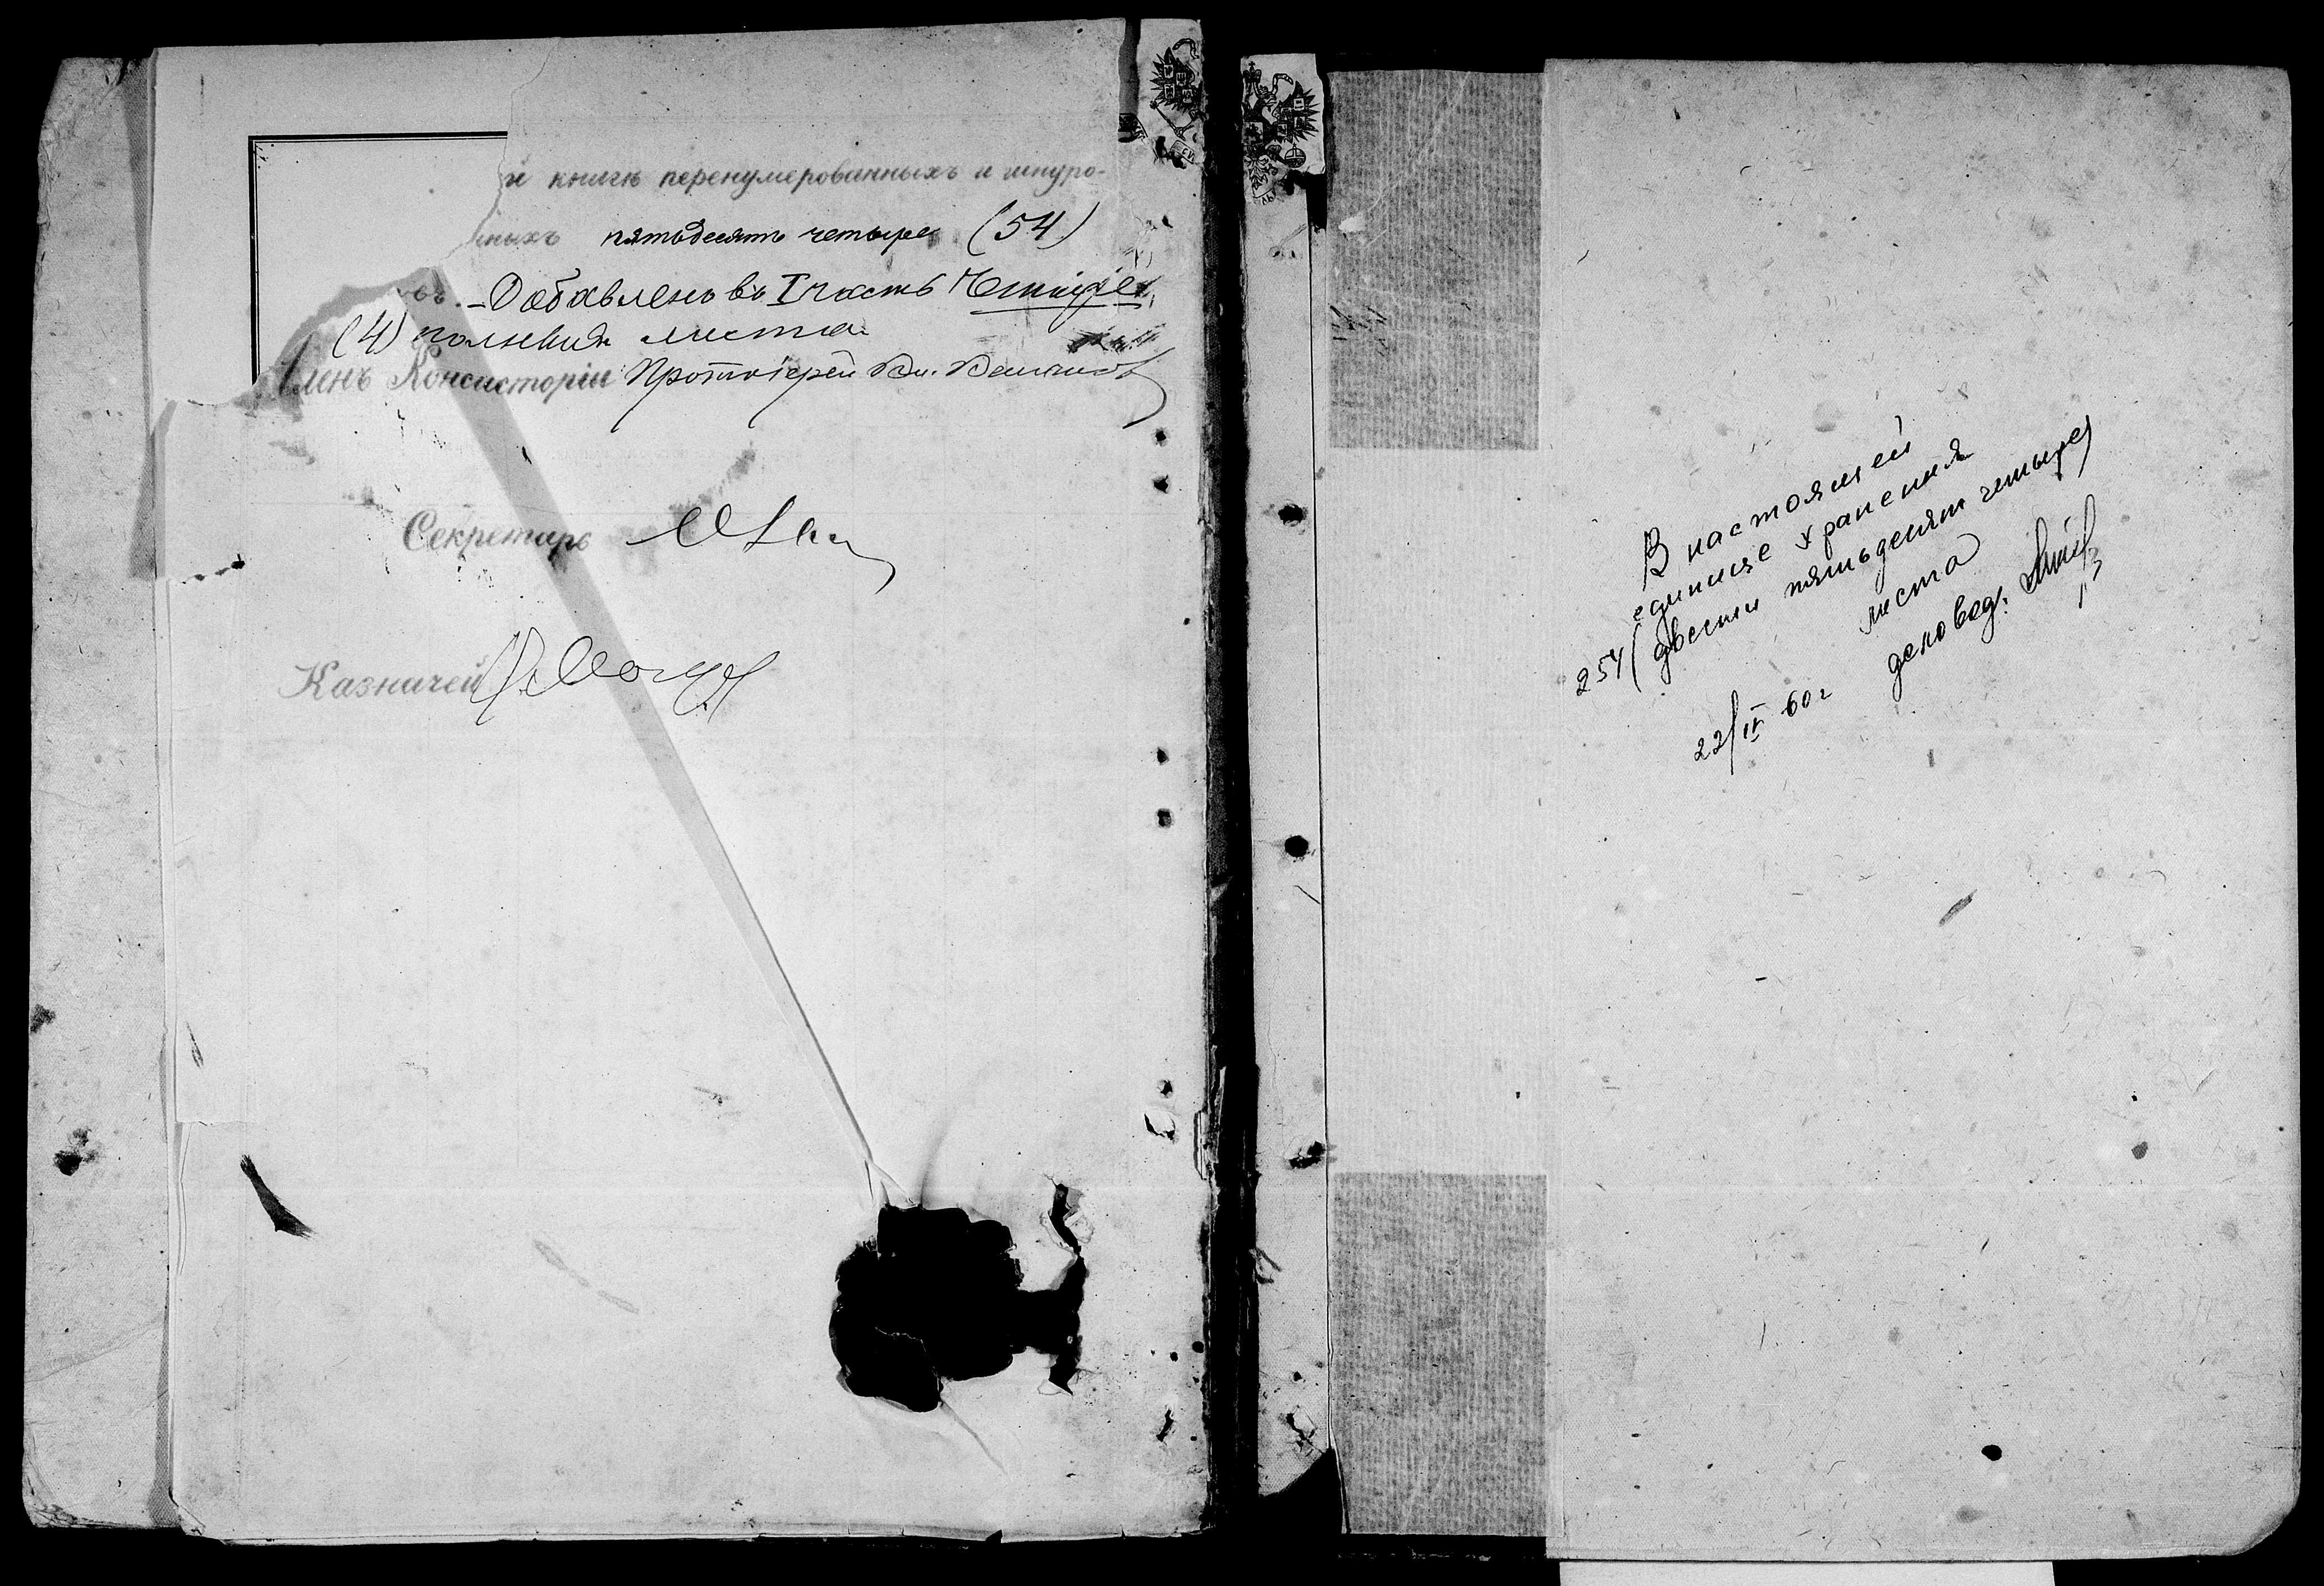 й книгѣ перенумерованныхъ и шнуро-
ныхъ пятьдесятъ четыре (54)
въ. - Добавленъ въ I часть Четыре
(4) листа
Членъ Консисторіи Протоіерей Вл.
Секретарь
Казначей
В настоящей
единице хранения
254 (двести пятьдесят четыре)
листа
22/IV 60 г делопроизв.